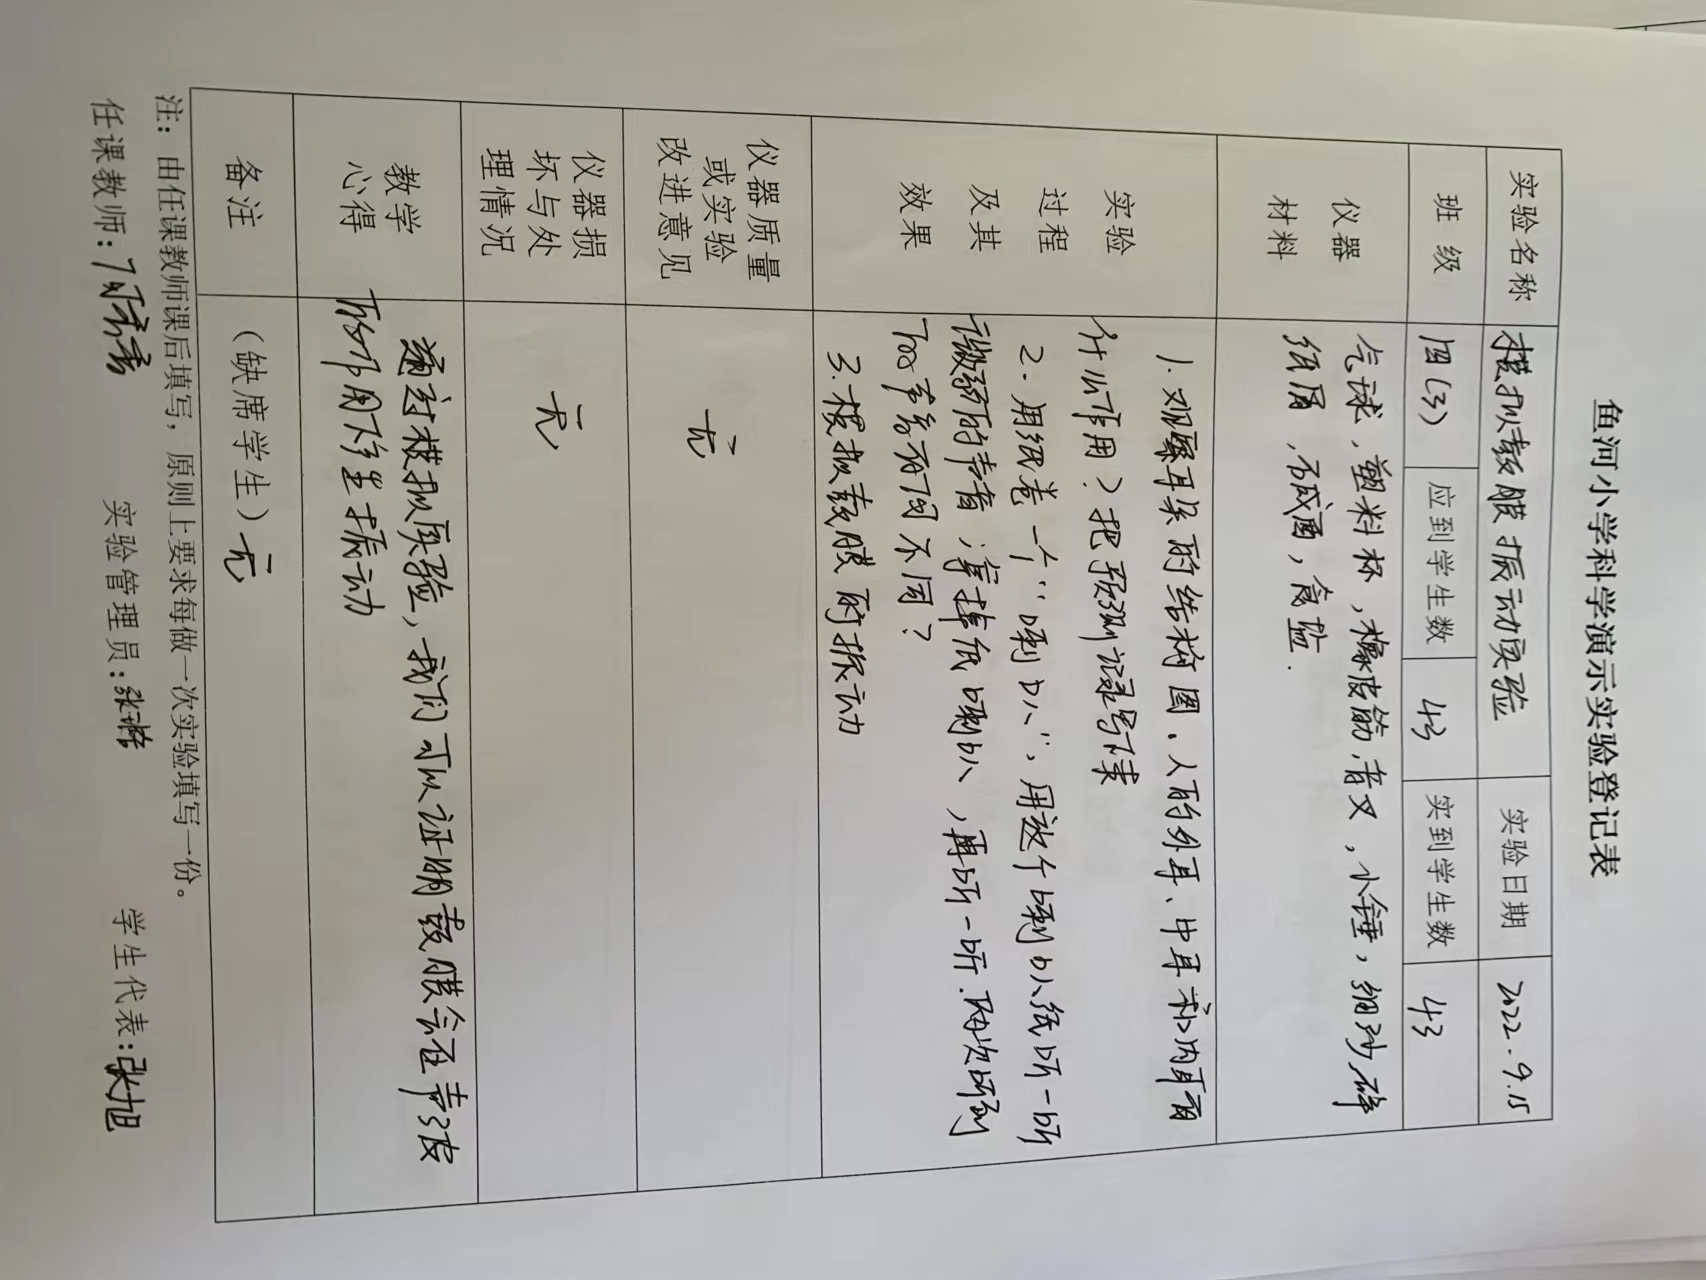 鱼河小学科学演示实验登记表
实验名称 模拟鼓膜振动实验 实验日期 2022.9.15
班级 四(3) 应到学生数 43 实到学生数 43
仪器
材料
气球，塑料杯，橡皮筋，音叉，小锤，细沙，碎
纸屑，食盐.
实验
过程
及其
效果
1.观察耳朵的结构图，人的外耳、中耳和内耳有
什么作用？把预测记录写下来
2.用纸卷一个“喇叭”，用这个喇叭纸听一听
微弱的声音，拿掉纸喇叭，再听一听.两次听到
的声音有何不同？
3.模拟鼓膜的振动
仪器质量
或实验
改进意见
无
仪器损
坏与处
理情况
无
教学
心得
通过模拟实验，我们可以证明鼓膜会在声波
的作用下产生振动
备注 (缺席学生)无
注：由任课教师课后填写，原则上要求每做一次实验填写一份。
任课教师： 实验管理员：张 学生代表：张旭